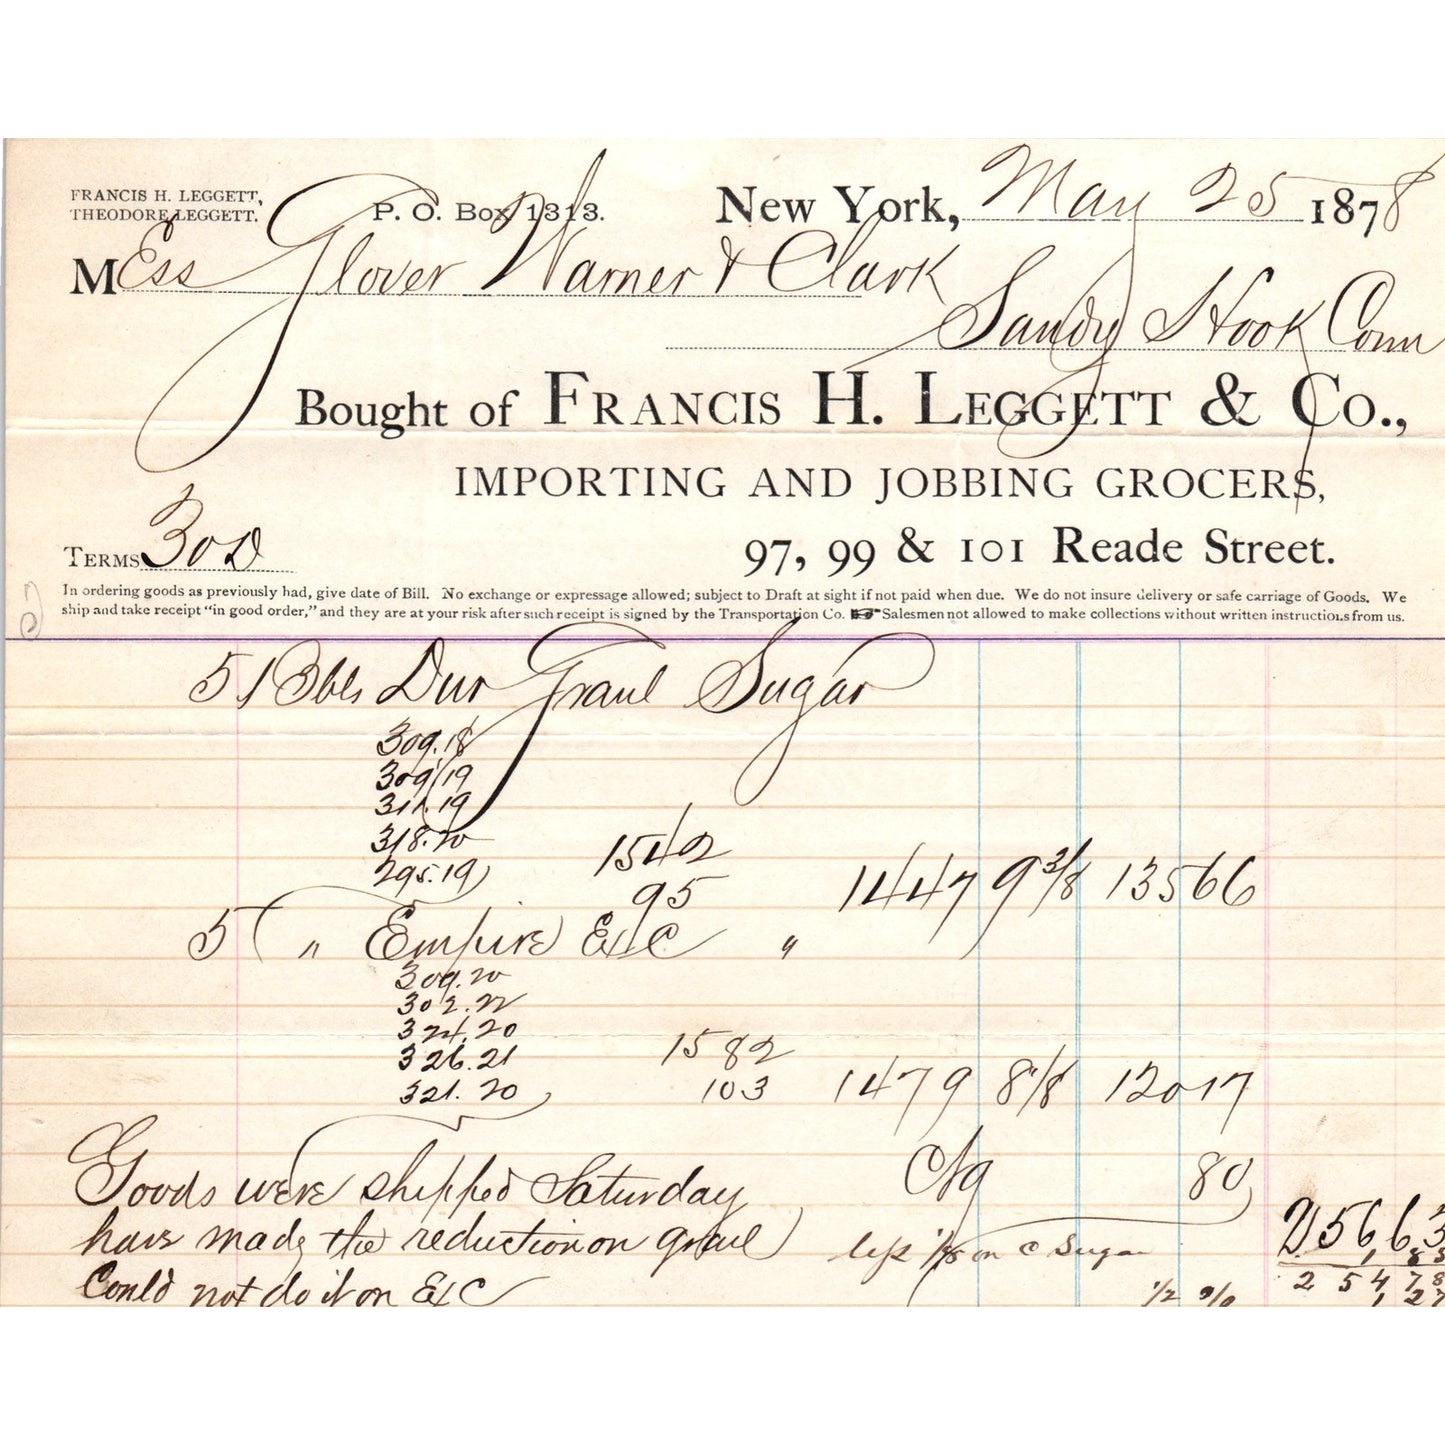 FRANCIS H. LEGGETT,
THEODORE LEGGETT.
P. O. Box 1313.
New York, May 25 1878
Mess Glover Warner & Clark
Sandy Hook Conn
Bought of FRANCIS H. LEGGETT & Co.,
IMPORTING AND JOBBING GROCERS,
97, 99 & 101 Reade Street.
TERMS 30 D
In ordering goods as previously had, give date of Bill. No exchange or expressage allowed; subject to Draft at sight if not paid when due. We do not insure delivery or safe carriage of Goods. We
ship and take receipt "in good order," and they are at your risk after such receipt is signed by the Transportation Co. ☞ Salesmen not allowed to make collections without written instructions from us.
5 Bbls Dur Granl Sugar
309.18
309.19
311.19
318.20
295.19
1542
95
1447 9 3/8 135 66
5 " Empire Ex C "
309.20
302.22
324.20
326.21
321.20
1582
103
1479 8 1/8 120 17
Ctg 80
Goods were shipped Saturday
have made the reduction on granl
Could not do it on Ex C
less 1/8 on C Sugar
1/2 %
256 63
1 85
254 78
1 27